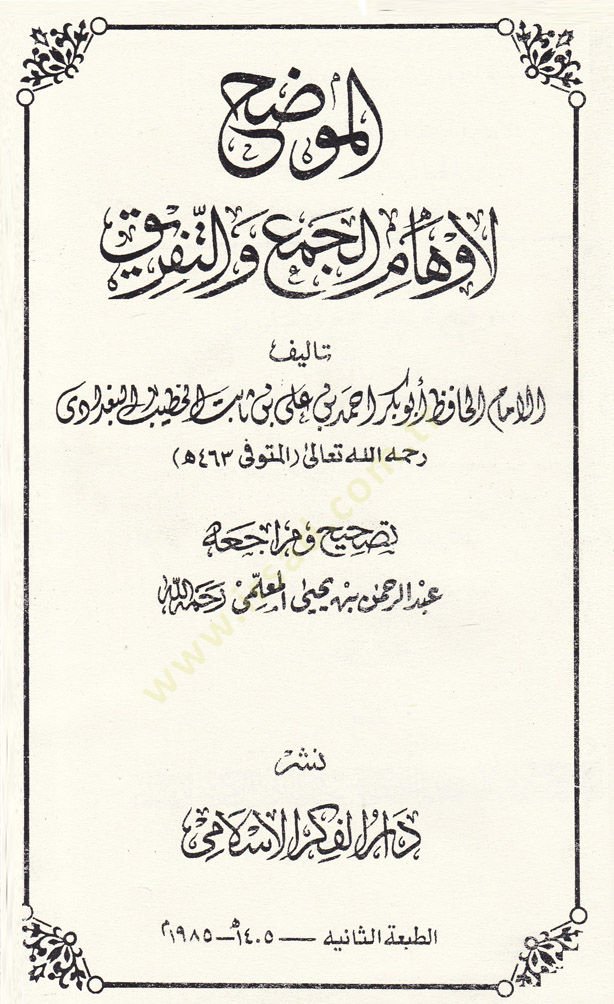 الموضح
لأوهام الجمع والتفريق
تاليف
الامام الحافظ أبو بكر احمد بن علي بن ثابت الخطيب البغدادي
رحمه الله تعالى (المتوفى ٤٦٣ ه)
تصحيح ومراجعة
عبد الرحمن بن يحيى المعلمي رحمه الله
نشر
دار الفكر الاسلامي
الطبعة الثانيه — ١٤٠٥ه — ١٩٨٥م